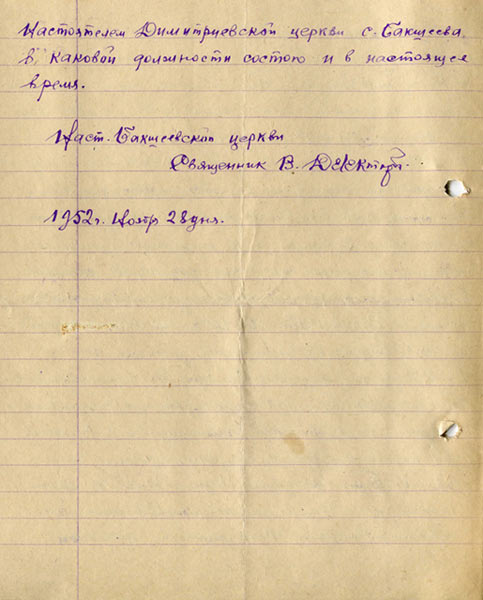 Настоятелем Димитриевской церкви с. Бакшеева,
в каковой должности состою и в настоящее
время.
Наст. Бакшеевской церкви
Священник В.
1952 г. Ноябр 28 дня.